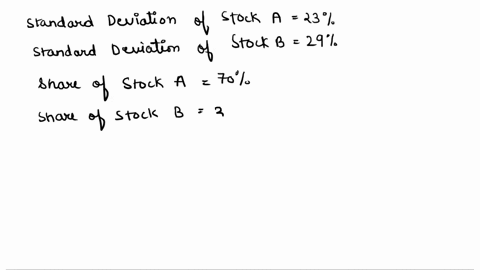 Standard Deviation of Stock A = 23%
Standard Deviation of Stock B = 29%
Share of Stock A = 70%
Share of Stock B = 3